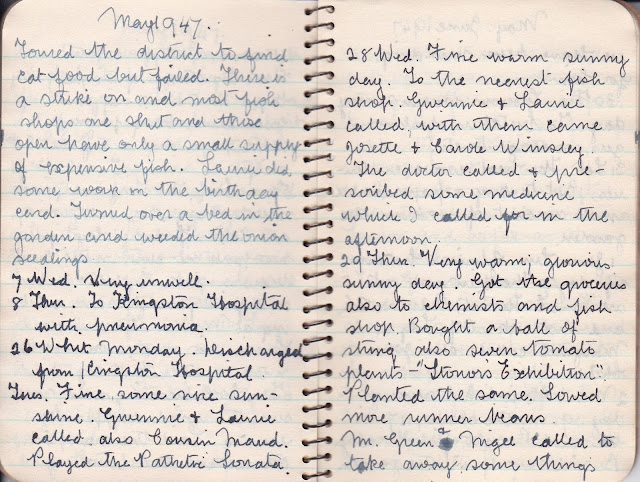 May 1947.
Toured the district to find
cat food but failed. There is
a strike on and most fish
shops are shut and those
open have only a small supply
of expensive fish. Laurie did
some work on the birthday
card. Turned over a bed in the
garden and weeded the onion
seedlings
7 Wed. Very unwell.
8 Thur. To Kingston Hospital
with pneumonia.
26 Whit Monday. Discharged
from Kingston Hospital.
Tues. Fine, some nice sun-
shine. Gwennie & Laurie
called, also Cousin Maud.
Played the Pathetic Sonata.
28 Wed. Fine warm sunny
day. To the nearest fish
shop. Gwennie & Laurie
called, with them came
Josette & Carole Winsley.
The doctor called & pre-
scribed some medicine
which I called for in the
afternoon.
29 Thur. Very warm, glorious
sunny day. Got the groceries
also to chemists and fish
shop. Bought a ball of
string also seven tomato
plants - "Stonor's Exhibition".
Planted the same. Sowed
more runner beans.
Mr. Green & called to
take away some things